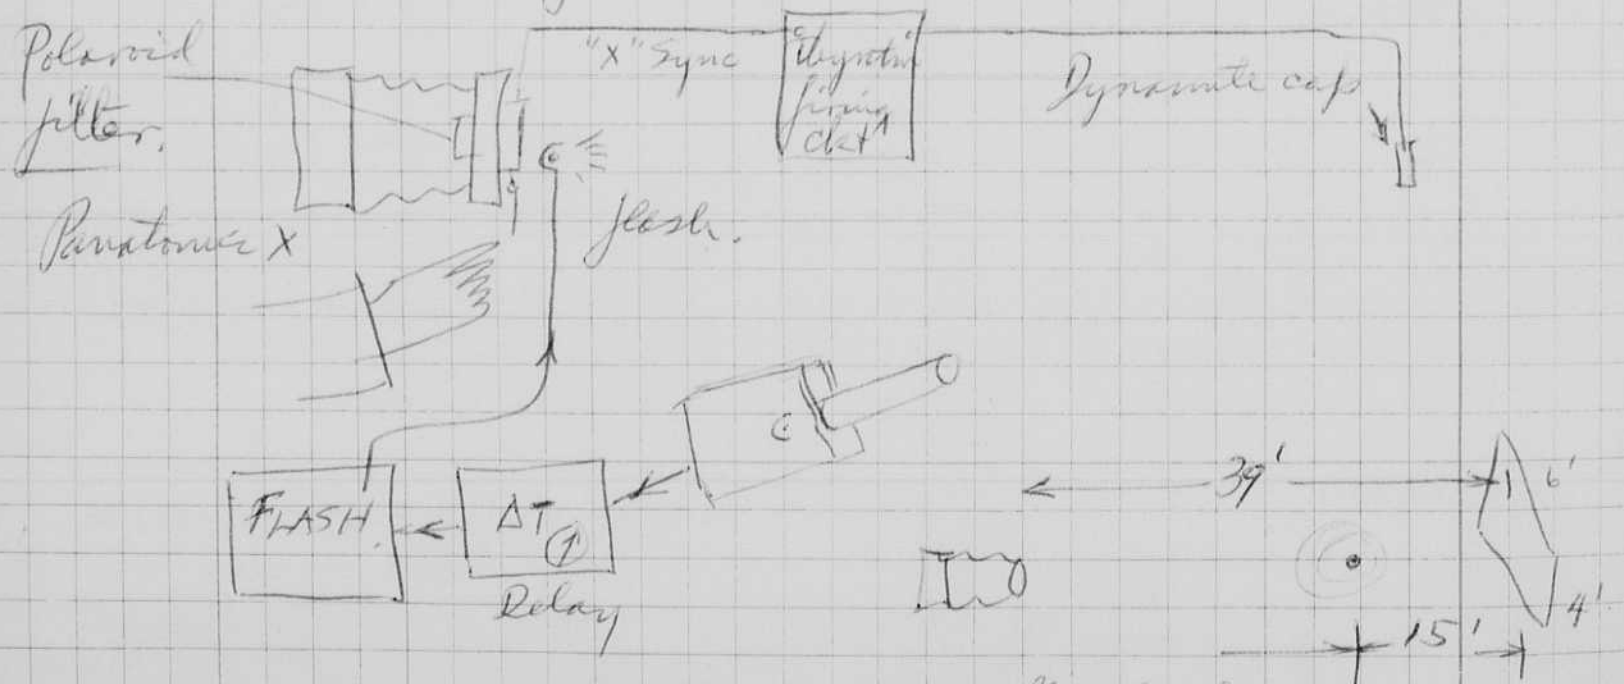 Polaroid
filter.
"X" Sync
Thyratron
firing
ckt
Dynamite cap
Panatomic X
flash.
FLASH.
ΔT
1
Delay
39'
6'
4'
15'